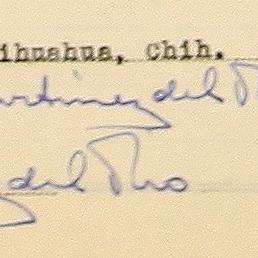 ihuahua, Chih.
artinez del R
y del Rio